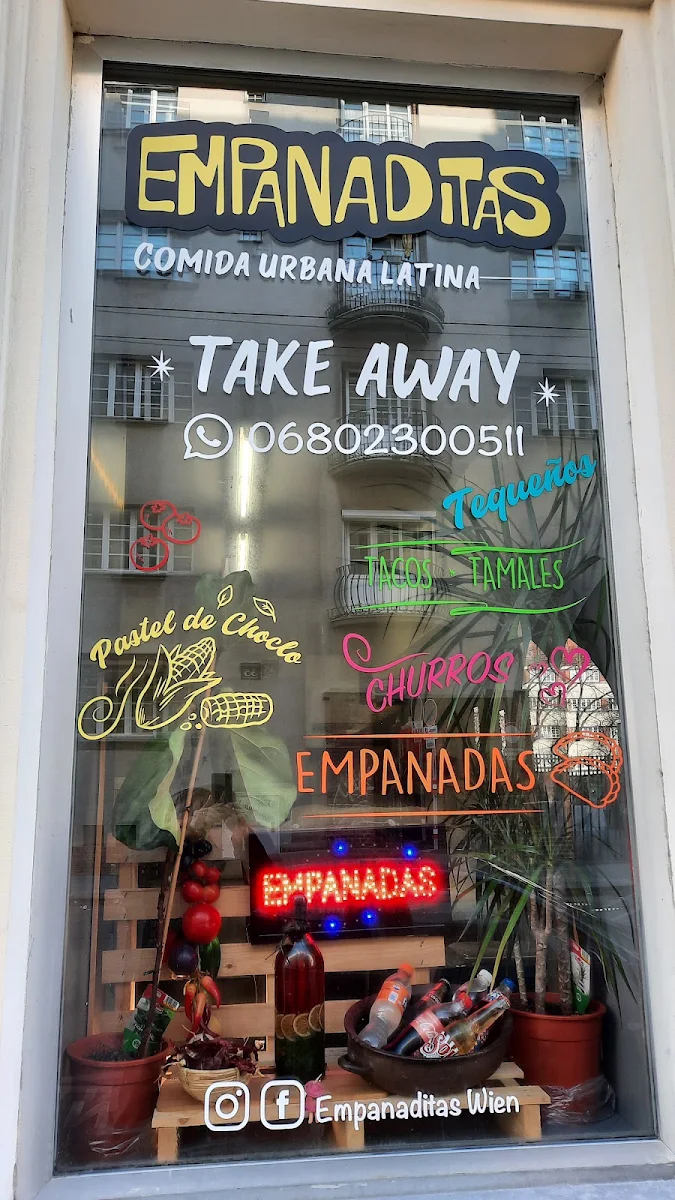 EMPANADITAS
COMIDA URBANA LATINA
TAKE AWAY
06802300511
Tequeños
TACOS - TAMALES
Pastel de Choclo
CHURROS
EMPANADAS
EMPANADAS
Empanaditas Wien